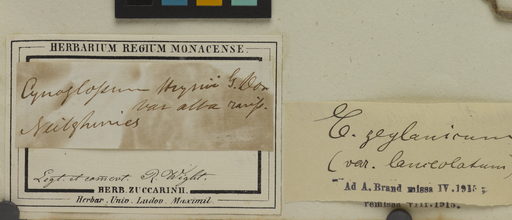 HERBARIUM REGIUM MONACENSE.
Cynoglossum G. Don
var alba
Neilgherries
Legt. et comovt. R. Wight.
HERB. ZUCCARINII.
Herbar. Univ. Ludov. Maximil.
C. zeylanicum
(var. lanceolatum)
Ad A. Brand missa IV. 1915;
remissa VIII. 1915.